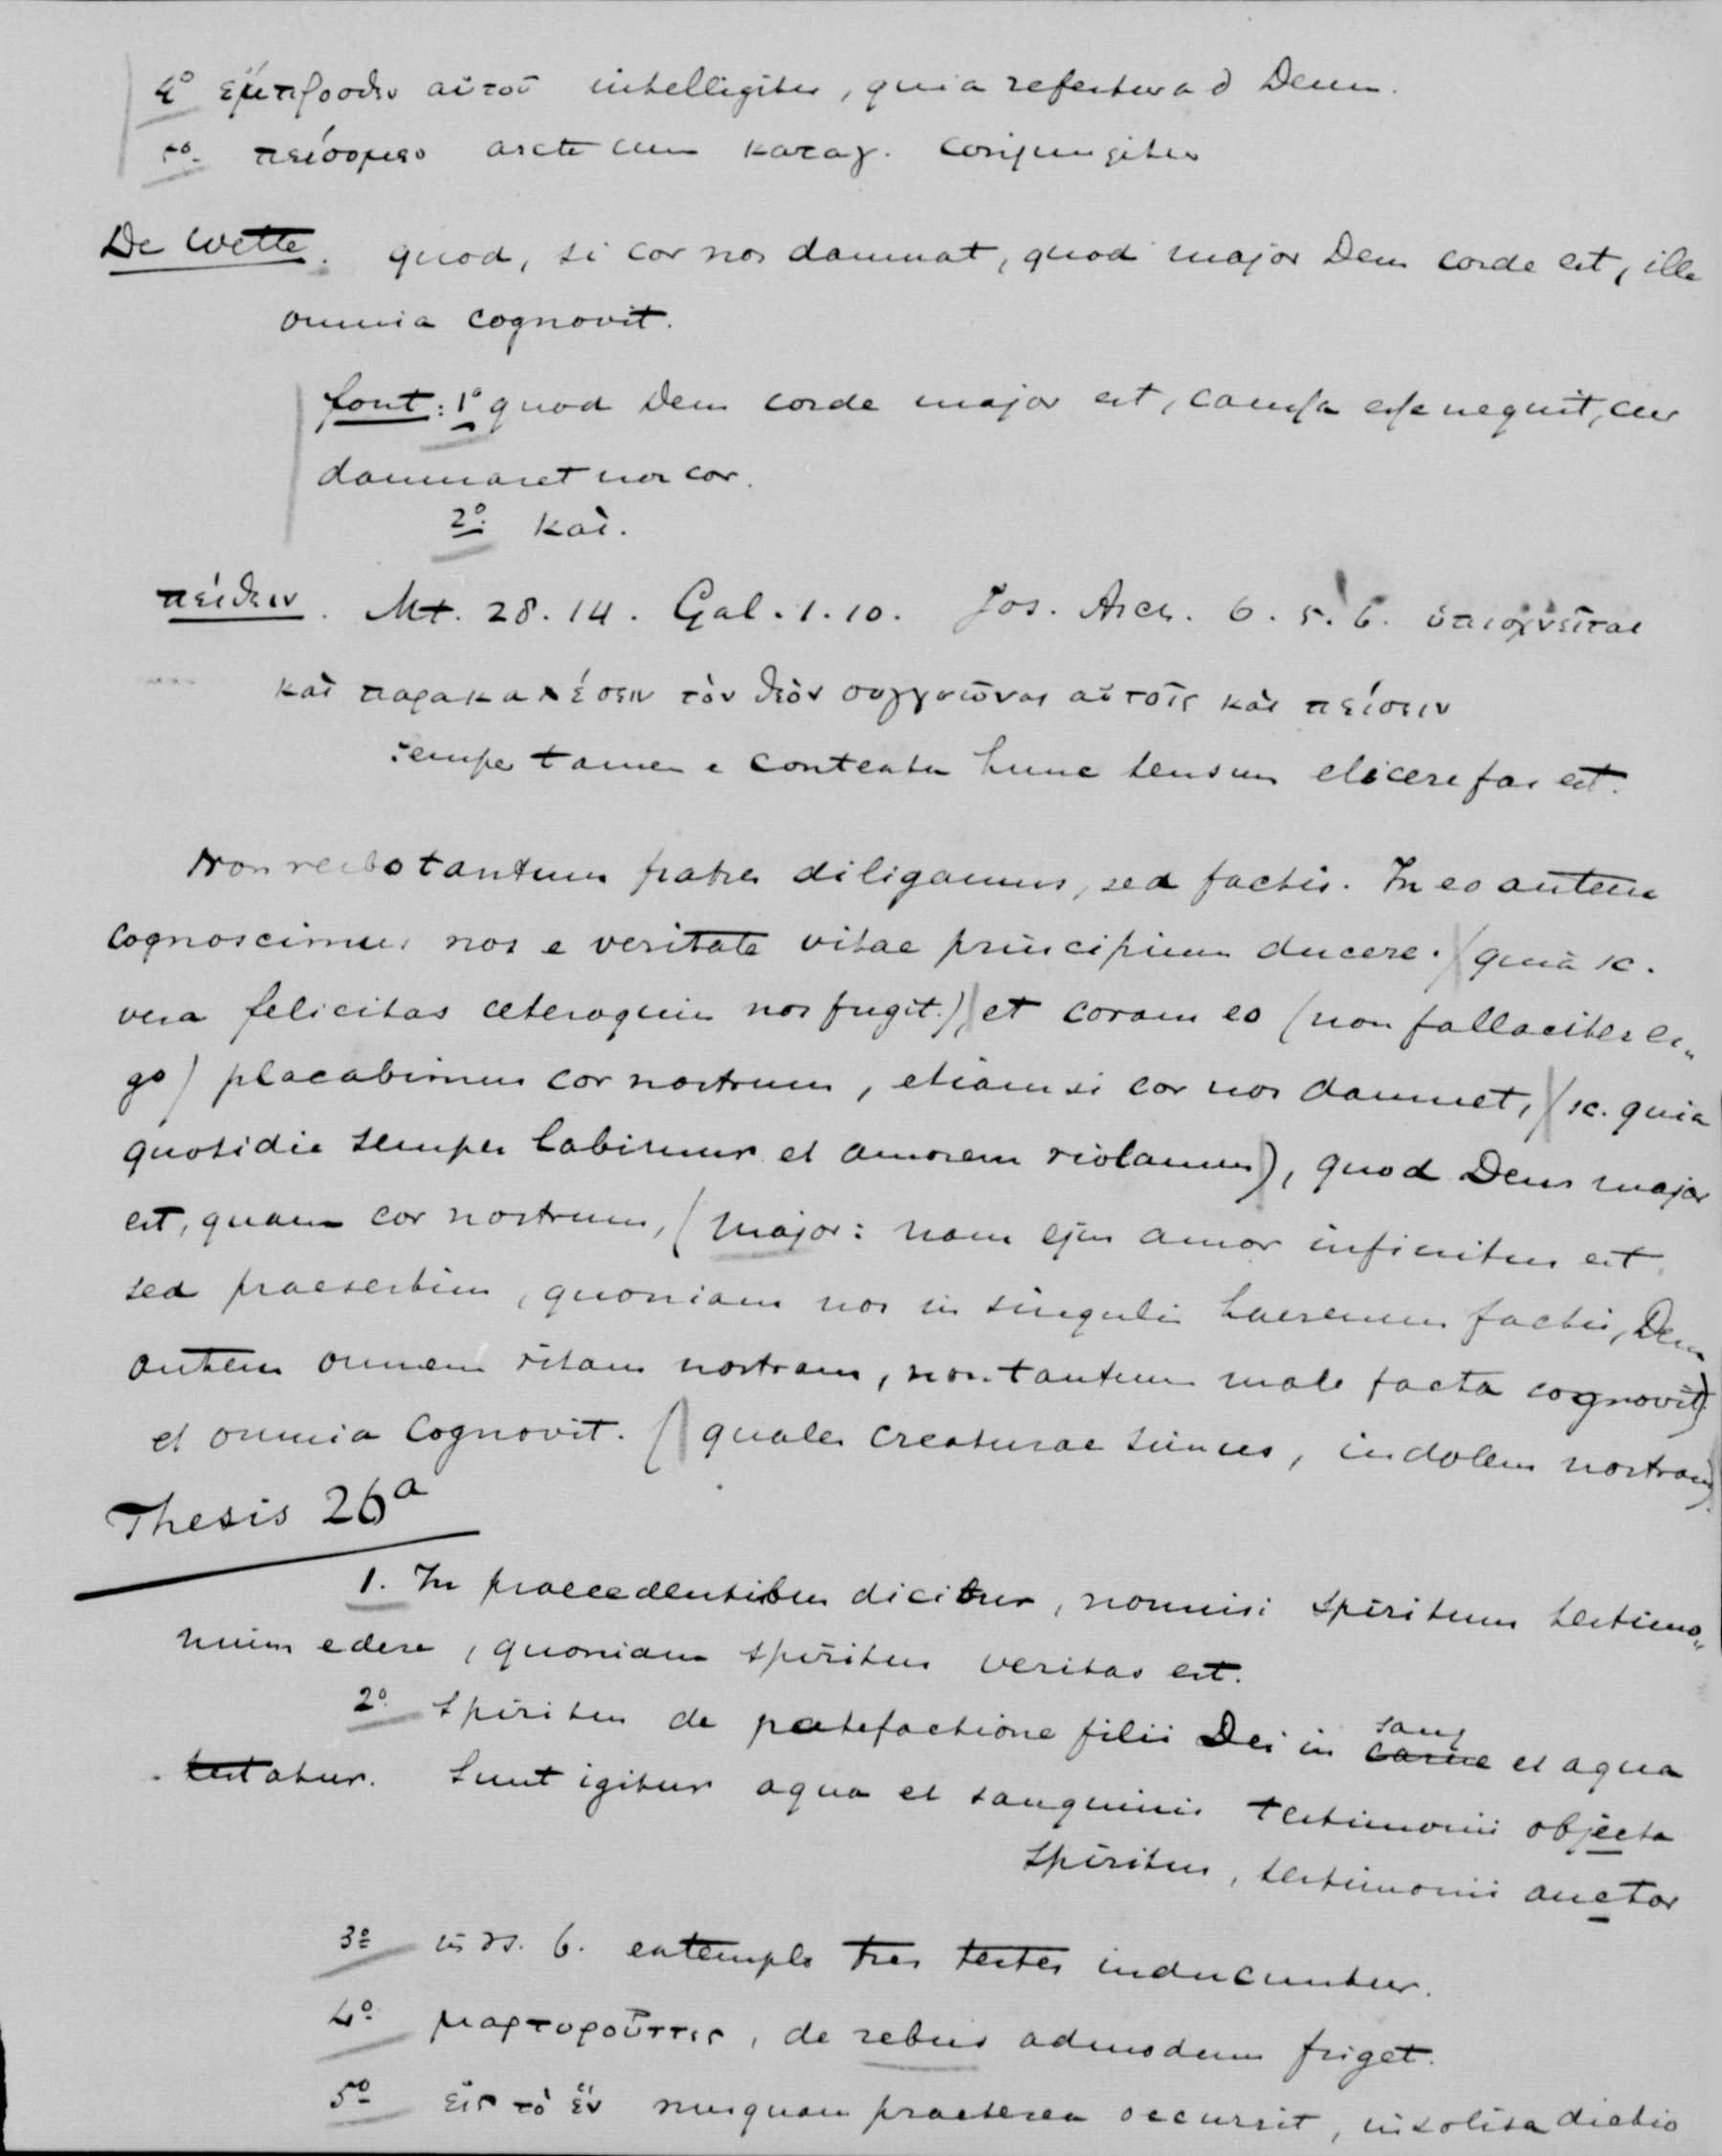 4° ἔμπροσθεν αὐτοῦ intelligitur, quia refertur ad Deum.
5o. πείσομεν arcte cum καταγ. conjungitur
De Wette. quod, si cor nos damnat, quod major Deus corde est, ille
omnia cognovit.
Cont: 1° quod Deus corde major est, caussa esse nequit, cur
damnaret nos cor.
2° καὶ.
πείθειν. Mt. 28.14. Gal. 1.10. Jos. Arch. 6.5.6. ὑπισχνεῖται
καὶ παρακαλέσειν τὸν θεὸν συγγνῶναι αὐτοῖς καὶ πείσειν
semper tamen e contextu hunc sensum elicere fas est.
Non verbo tantum fratres diligamus, sed factis. In eo autem
cognoscimus nos e veritate vitae principium ducere. (quia sc.
vera felicitas ceteroquin nos fugit.), et coram eo (non fallaciter er„
go) placabimus cor nostrum, etiamsi cor nos damnet, (sc. quia
quotidie semper labimur et amorem violamus), quod Deus major
est, quam cor nostrum, (major: nam ejus amor infinitus est
sed praesertim, quoniam nos in singulis haeremus factis, Deus
autem omnem vitam nostram, non tantum male facta cognovit)
et omnia cognovit. (quales creaturae simus, indolem nostram).
Thesis 26a
1. In praecedentibus dicitur, nonnisi spiritum testimo„
nium edere, quoniam spiritus veritas est.
2° Spiritus de patefactione filii Dei in carne sang et aqua
testatur. Sunt igitur aqua et sanguinis testimonii objecta
Spiritus, testimonii auctor
3° in vs. 6. extemplo tres testes inducuntur.
4° μαρτυροῦντες, de rebus admodum friget.
5° εἰς τὸ ἕν nusquam praeterea occurrit, insolita dictio